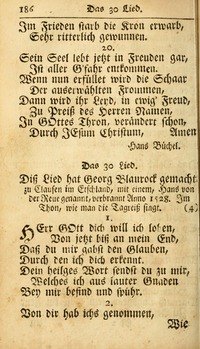 186 Das 30 Lied.
Im Frieden starb die Kron erwarb,
Sehr ritterlich gewunnen.
20.
Sein Seel lebt jetzt in Freuden gar,
Ist aller Gfahr entkommen.
Wenn nun erfüllet wird die Schaar
Der auserwählten Frommen,
Dann wird ihr Leyd, in ewig' Freud,
Zu Preiß des Herren Namen,
In GOttes Thron, verändert schon,
Durch JEsum Christum, Amen
Hans Büchel.
Das 30 Lied.
Diß Lied hat Georg Blaurock gemacht
zu Clausen im Etschland, mit einem, Hans von
der Reue genannt, verbrannt Anno 1528. Im
Thon, wie man die Tageiß singt. (4)
1.
HErr GOtt dich will ich loben,
Von jetzt biß an mein End,
Daß du mir gabst den Glauben,
Durch den ich dich erkennt.
Dein heilges Wort sendst du zu mir,
Welches ich aus lauter Gnaden
Bey mir befind und spühr.
2.
Von dir hab ichs genommen,
Wie